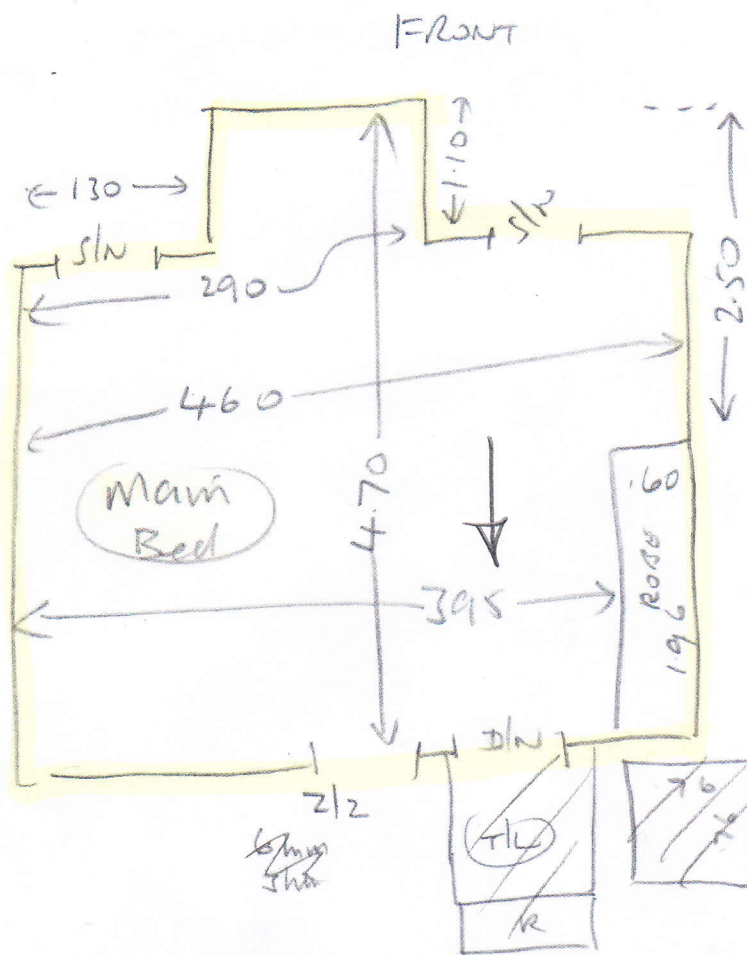 FRONT
130
1.10
S/N
S/N
290
2.50
460
Main
Bed
4.70
.60
ROBE
1.96
395
D/N
Z/Z
T/L
R